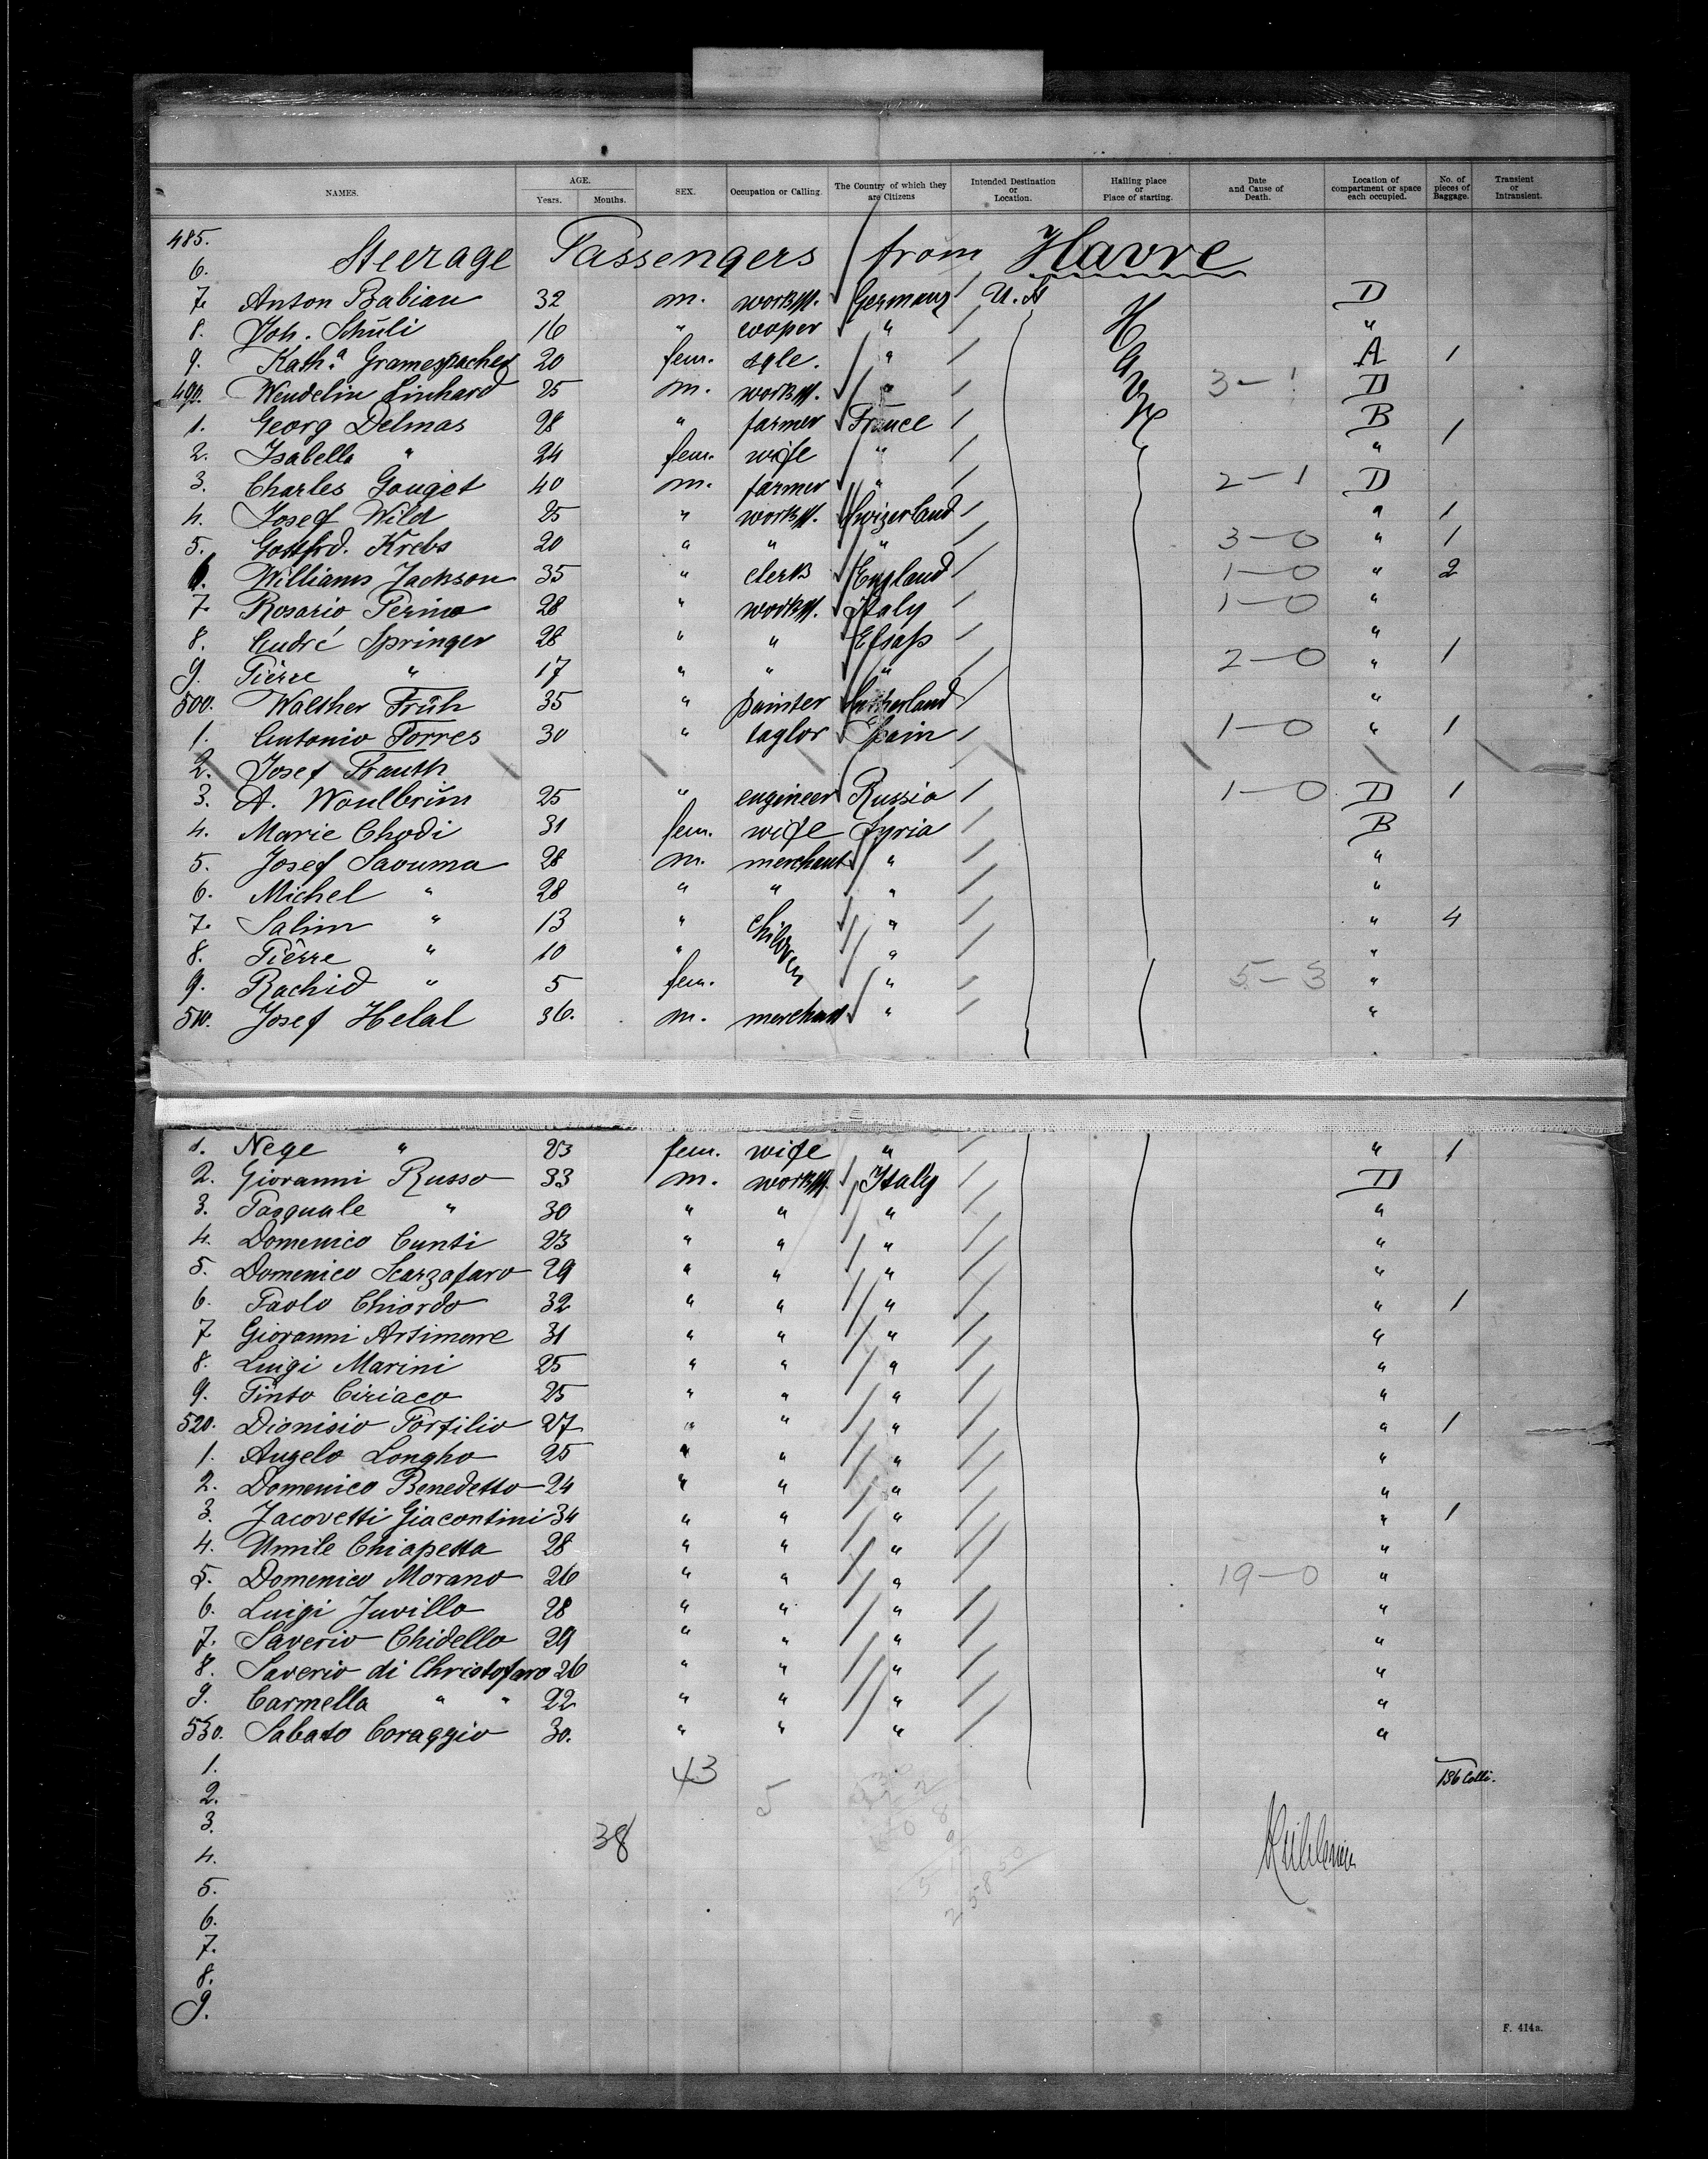 NAMES. AGE. Years. Months. SEX. Occupation or Calling. The Country of which they are Citizens Intended Destination or Location. Hailing place or Place of starting. Date and Cause of Death. Location of compartment or space each occupied. No. of pieces of Baggage. Transient or Intransient.
485.
6. Steerage Passengers from Havre
7. Anton Babian 32 m. workm. Germany U.S. D
8. Joh. Schüli 16 " cooper " "
9. Kath.a Gramespacher 20 fem. sgle. " A 1
490. Wendelin Linhard 25 m. workm. " 3-1 D
1. Georg Delmas 28 " farmer France B 1
2. Isabella " 24 fem. wife " "
3. Charles Gouget 40 m. farmer " 2-1 D
4. Josef Wild 25 " workm. Swizerland " 1
5. Gottfrd. Krebs 20 " " " 3-0 " 1
6. Williams Jackson 35 " clerk England 1-0 " 2
7. Rosario Perino 28 " workm. Italy 1-0 "
8. André Springer 28 " " Elsass "
9. Pierre " 17 " " " 2-0 " 1
500. Walther Früh 35 " painter "
1. Antonio Torres 30 " taylor Spain 1-0 " 1
2. Josef Trauth
3. A. Woulbrün 25 " engineer Russia 1-0 D 1
4. Marie Chodi 31 fem. wife Syria B
5. Josef Saouma 28 m. merchant " "
6. Michel " 28 " " " "
7. Salim " 13 " children " " 4
8. Pierre " 10 " " "
9. Rachid " 5 fem. " 5-3 "
510. Josef Helal 36. m. merchant " "
1. Nege " 23 fem. wife " " 1
2. Giovanni Russo 33 m. workm. Italy D
3. Pasquale " 30 " " " "
4. Domenico Cunti 23 " " " "
5. Domenico Scarzafaro 29 " " " "
6. Paolo Chiordo 32 " " " " 1
7. Giovanni Artimone 31 " " " "
8. Luigi Marini 25 " " " "
9. Pinto Ciriaco 25 " " " "
520. Dionisio Porfilio 27 " " " " 1
1. Angelo Longho 25 " " " "
2. Domenico Benedetto 24 " " " "
3. Jacovetti Giacontini 34 " " " " 1
4. Umile Chiapetta 28 " " " "
5. Domenico Morano 26 " " " 19-0 "
6. Luigi Juvillo 28 " " " "
7. Saverio Chidello 29 " " " "
8. Saverio di Christofaro 26 " " " "
9. Carmella " " 22 " " " "
530. Sabato Coraggio 30. " " " "
1. 43 136 Colli.
2. 5
3. 38
4.
5.
6.
7.
8.
9.
F. 414a.